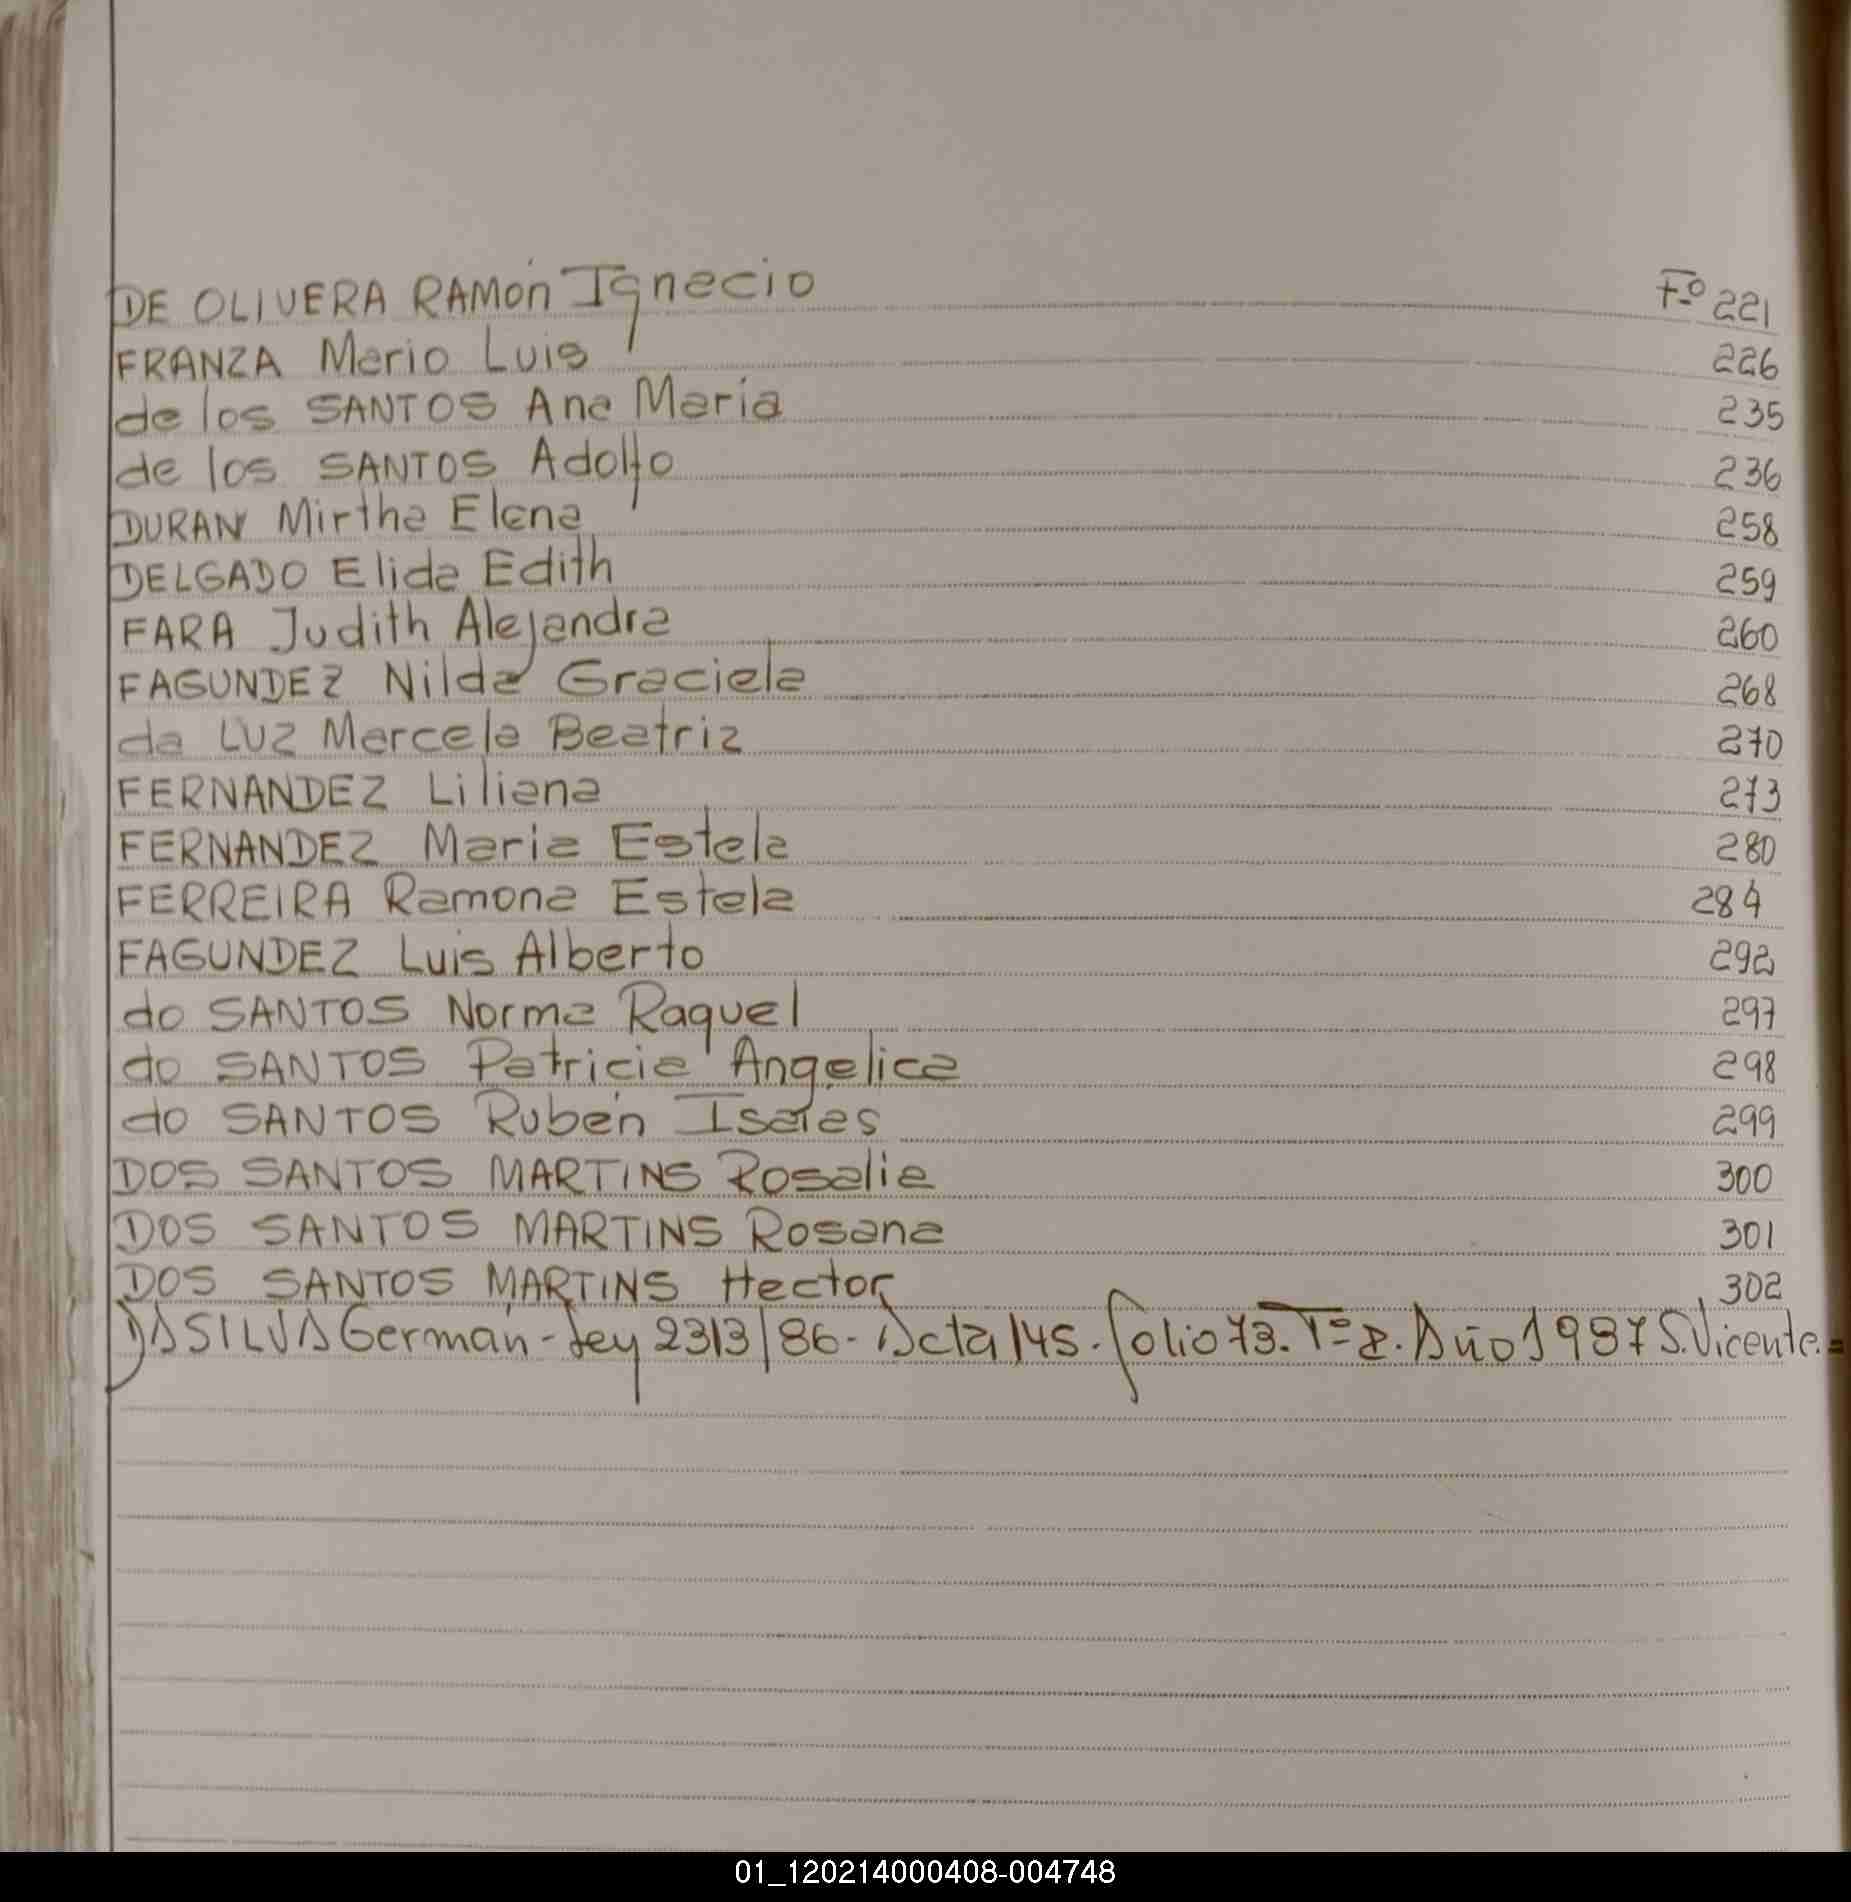 DE OLIVERA RAMÓN Ignacio Fº 221
FRANZA Mario Luis 226
de los SANTOS Ana María 235
de los SANTOS Adolfo 236
DURAN Mirtha Elena 258
DELGADO Elida Edith 259
FARA Judith Alejandra 260
FAGUNDEZ Nilda Graciela 268
da LUZ Marcela Beatriz 270
FERNANDEZ Liliana 273
FERNANDEZ Maria Estela 280
FERREIRA Ramona Estela 284
FAGUNDEZ Luis Alberto 292
do SANTOS Norma Raquel 297
do SANTOS Patricia Angelica 298
do SANTOS Rubén Isaías 299
DOS SANTOS MARTINS Rosalia 300
DOS SANTOS MARTINS Rosana 301
DOS SANTOS MARTINS Hector 302
DA SILVA Germán - Ley 2313/86 - Acta 145. folio 73. Tº 2. Año 1987 S. Vicente. =
01_120214000408-004748